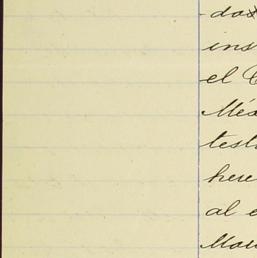 dos
ins
el C
Méx
test
here
al e
Mon